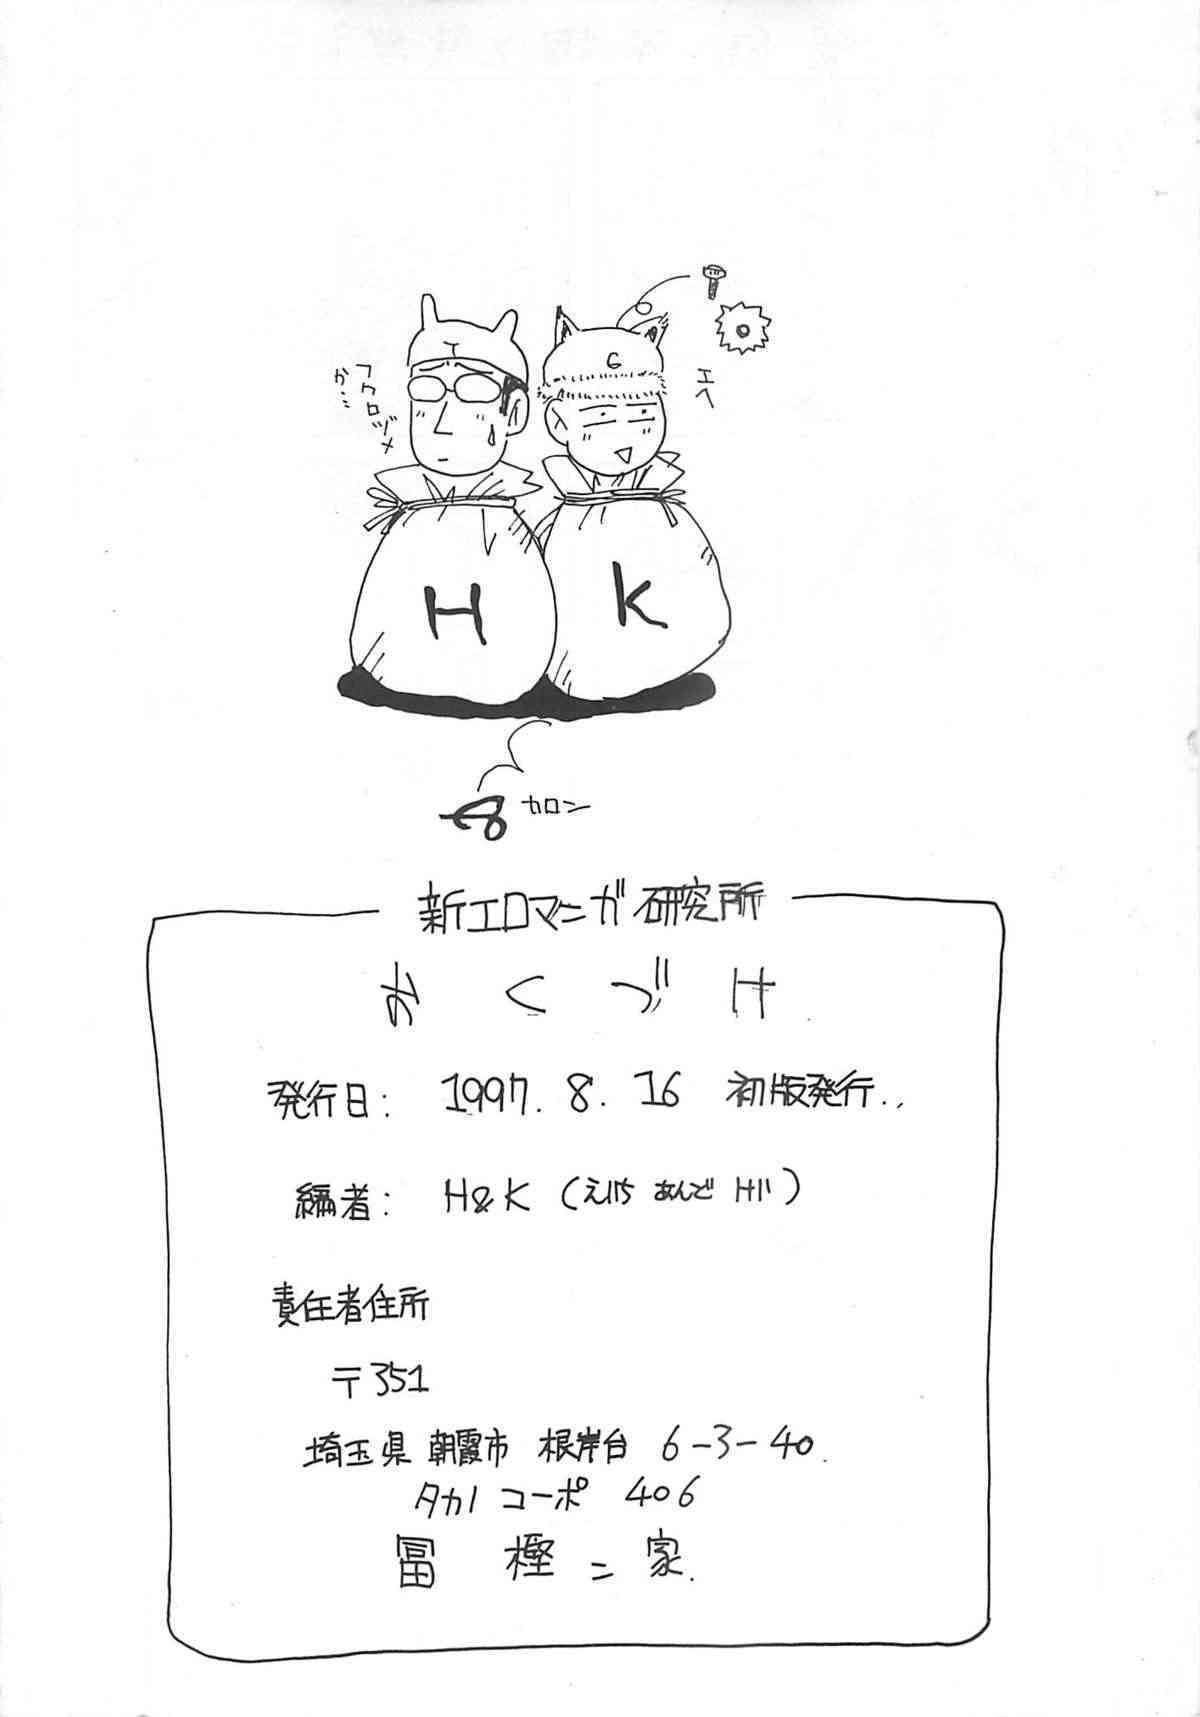 T
G
フクロヅメ
か…
エヘ
H
K
カロン
新エロマンガ研究所
おくづけ
発行日: 1997. 8. 16 初版発行..
編者: H&K (えいち あんど けい)
責任者住所
〒351
埼玉県 朝霞市 根岸台 6-3-40.
タカノ コーポ 406
冨樫ニ家.